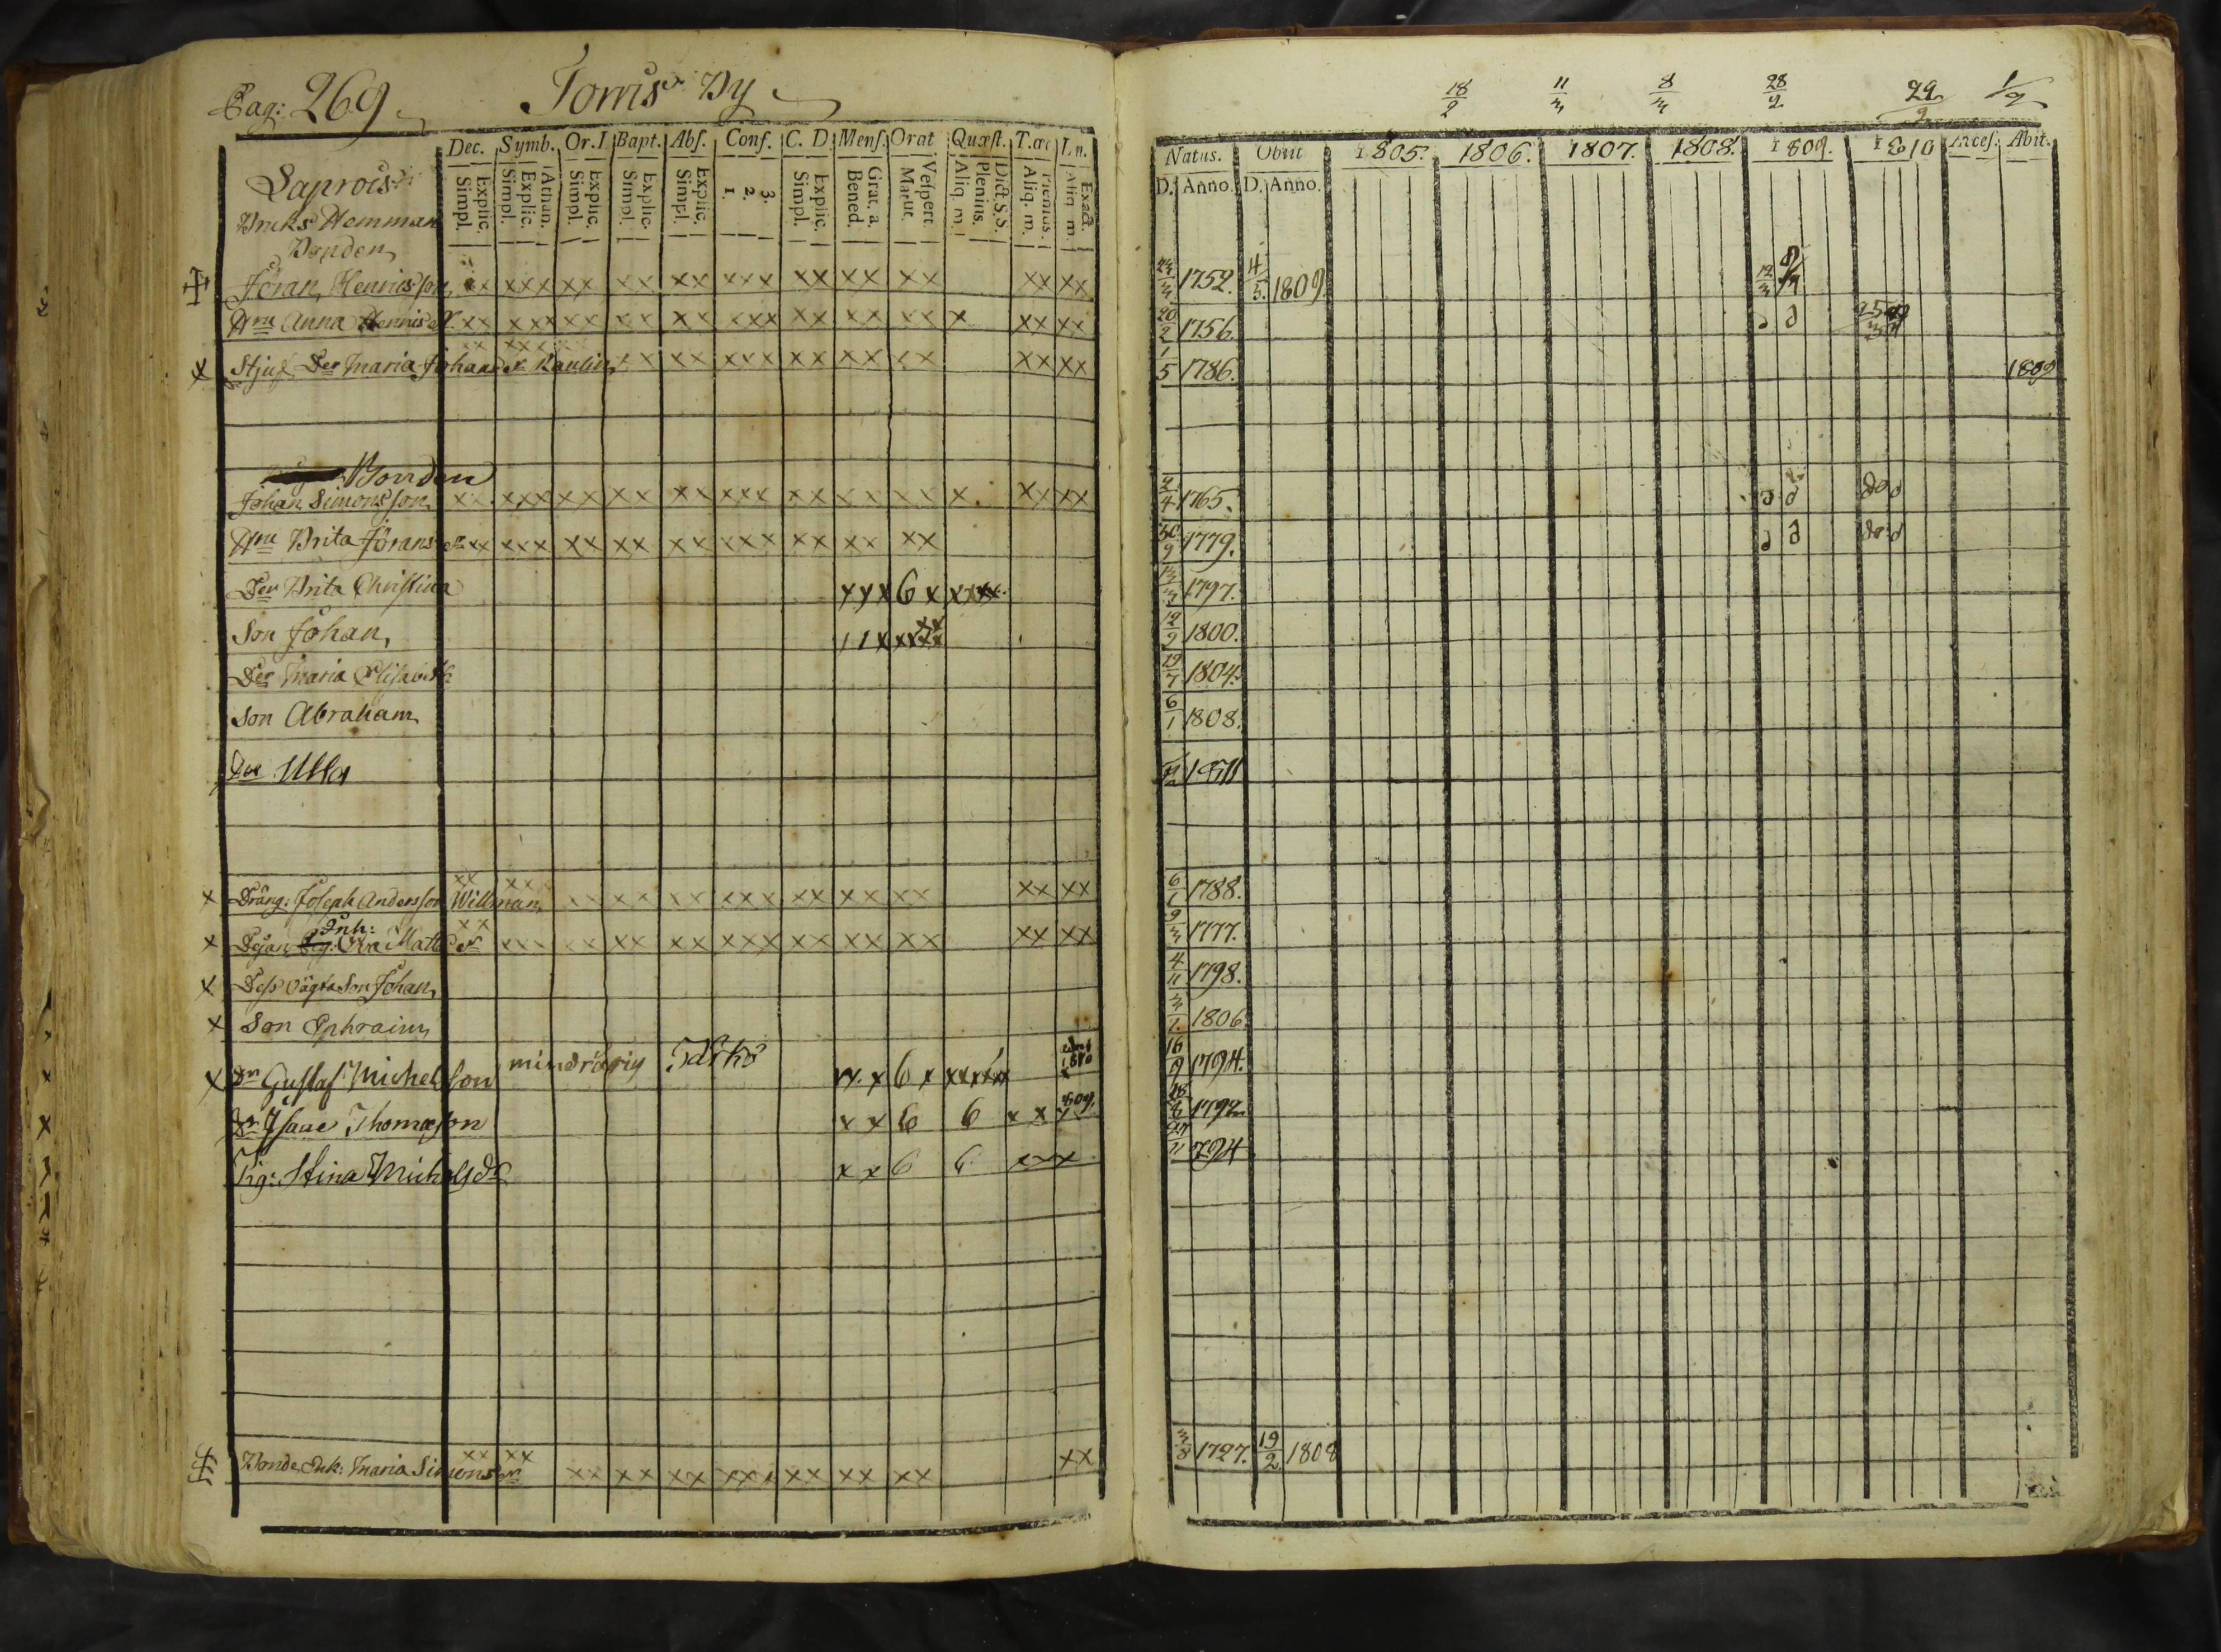 Pag: 269 Torris By
18/2 11/3 8/3 28/2 29/2 1/2
Dec. Symb. Or. Bapt. Abs. Conf. C. D. Mens. Orat Quæst.
Natus. Obiit 1805. 1806. 1807. 1808. 1809. 1810 Acces. Abit.
Explic. Simpl. Athan. Explic. Simpl. Explic. Simpl. Explic. Simpl. Explic. Simpl. 3. 2. 1. Explic. Simpl. Grat. a. Bened. Vespert. Matut. Dict. S.S. Plenius. Aliq. m. Plenius. Aliq. m. Exact. Aliq. m.
D. Anno. D. Anno.
Saprois
Bruks Hemman
Bonden
Jöran Henricsson xx xxx xx xx xx xxx xx xx xx xx xx 1752. 4/5. 1809
Hru Anna Henricsdr xx xxx xx xx xx xxx xx xx xx x xx xx 20/2 1756.
Stjuf Der Maria Johansdr Raulin xx xx xxx xx xx xx xx xx 1/5 1786. 1809
Bonden
Johan Simonsson xx xxx xx xx xx xxx xx xx xx x xx xx 2/4 1765.
Hru Brita Jöransdr xx xxx xx xx xx xxx xx xx xx 30/9 1779.
Der Brita Christina xxx 6 x 1797.
Son Johan 12/9 1800.
Der Maria Elisabeth 29/7 1804.
Son Abraham 6/1 1808.
Der Ulla 1811
Dräng: Joseph Andersson Willman xx xx xx xxx xx xx xx xx xx 6/1 1788.
Inh:
Eva Matts dr xxx xx xx xx xxx xx xx xx xx xx 9/3 1777.
Dess oägta Son Johan 4/11 1798.
Son Ephraim 3/1. 1806.
Dn Gustaf Michelsson mindrårig x 6 x 1810 16/9 1794.
Dn Isaac Thomasson x x 6 6 x x 809. 1792
Pig: Stina Michelsdr x x 6 6 1794
Bonde Enk: Maria Simonsdr xx xx xx xx xx xxx xx xx xx xx 3/8 1727. 19/2 1808